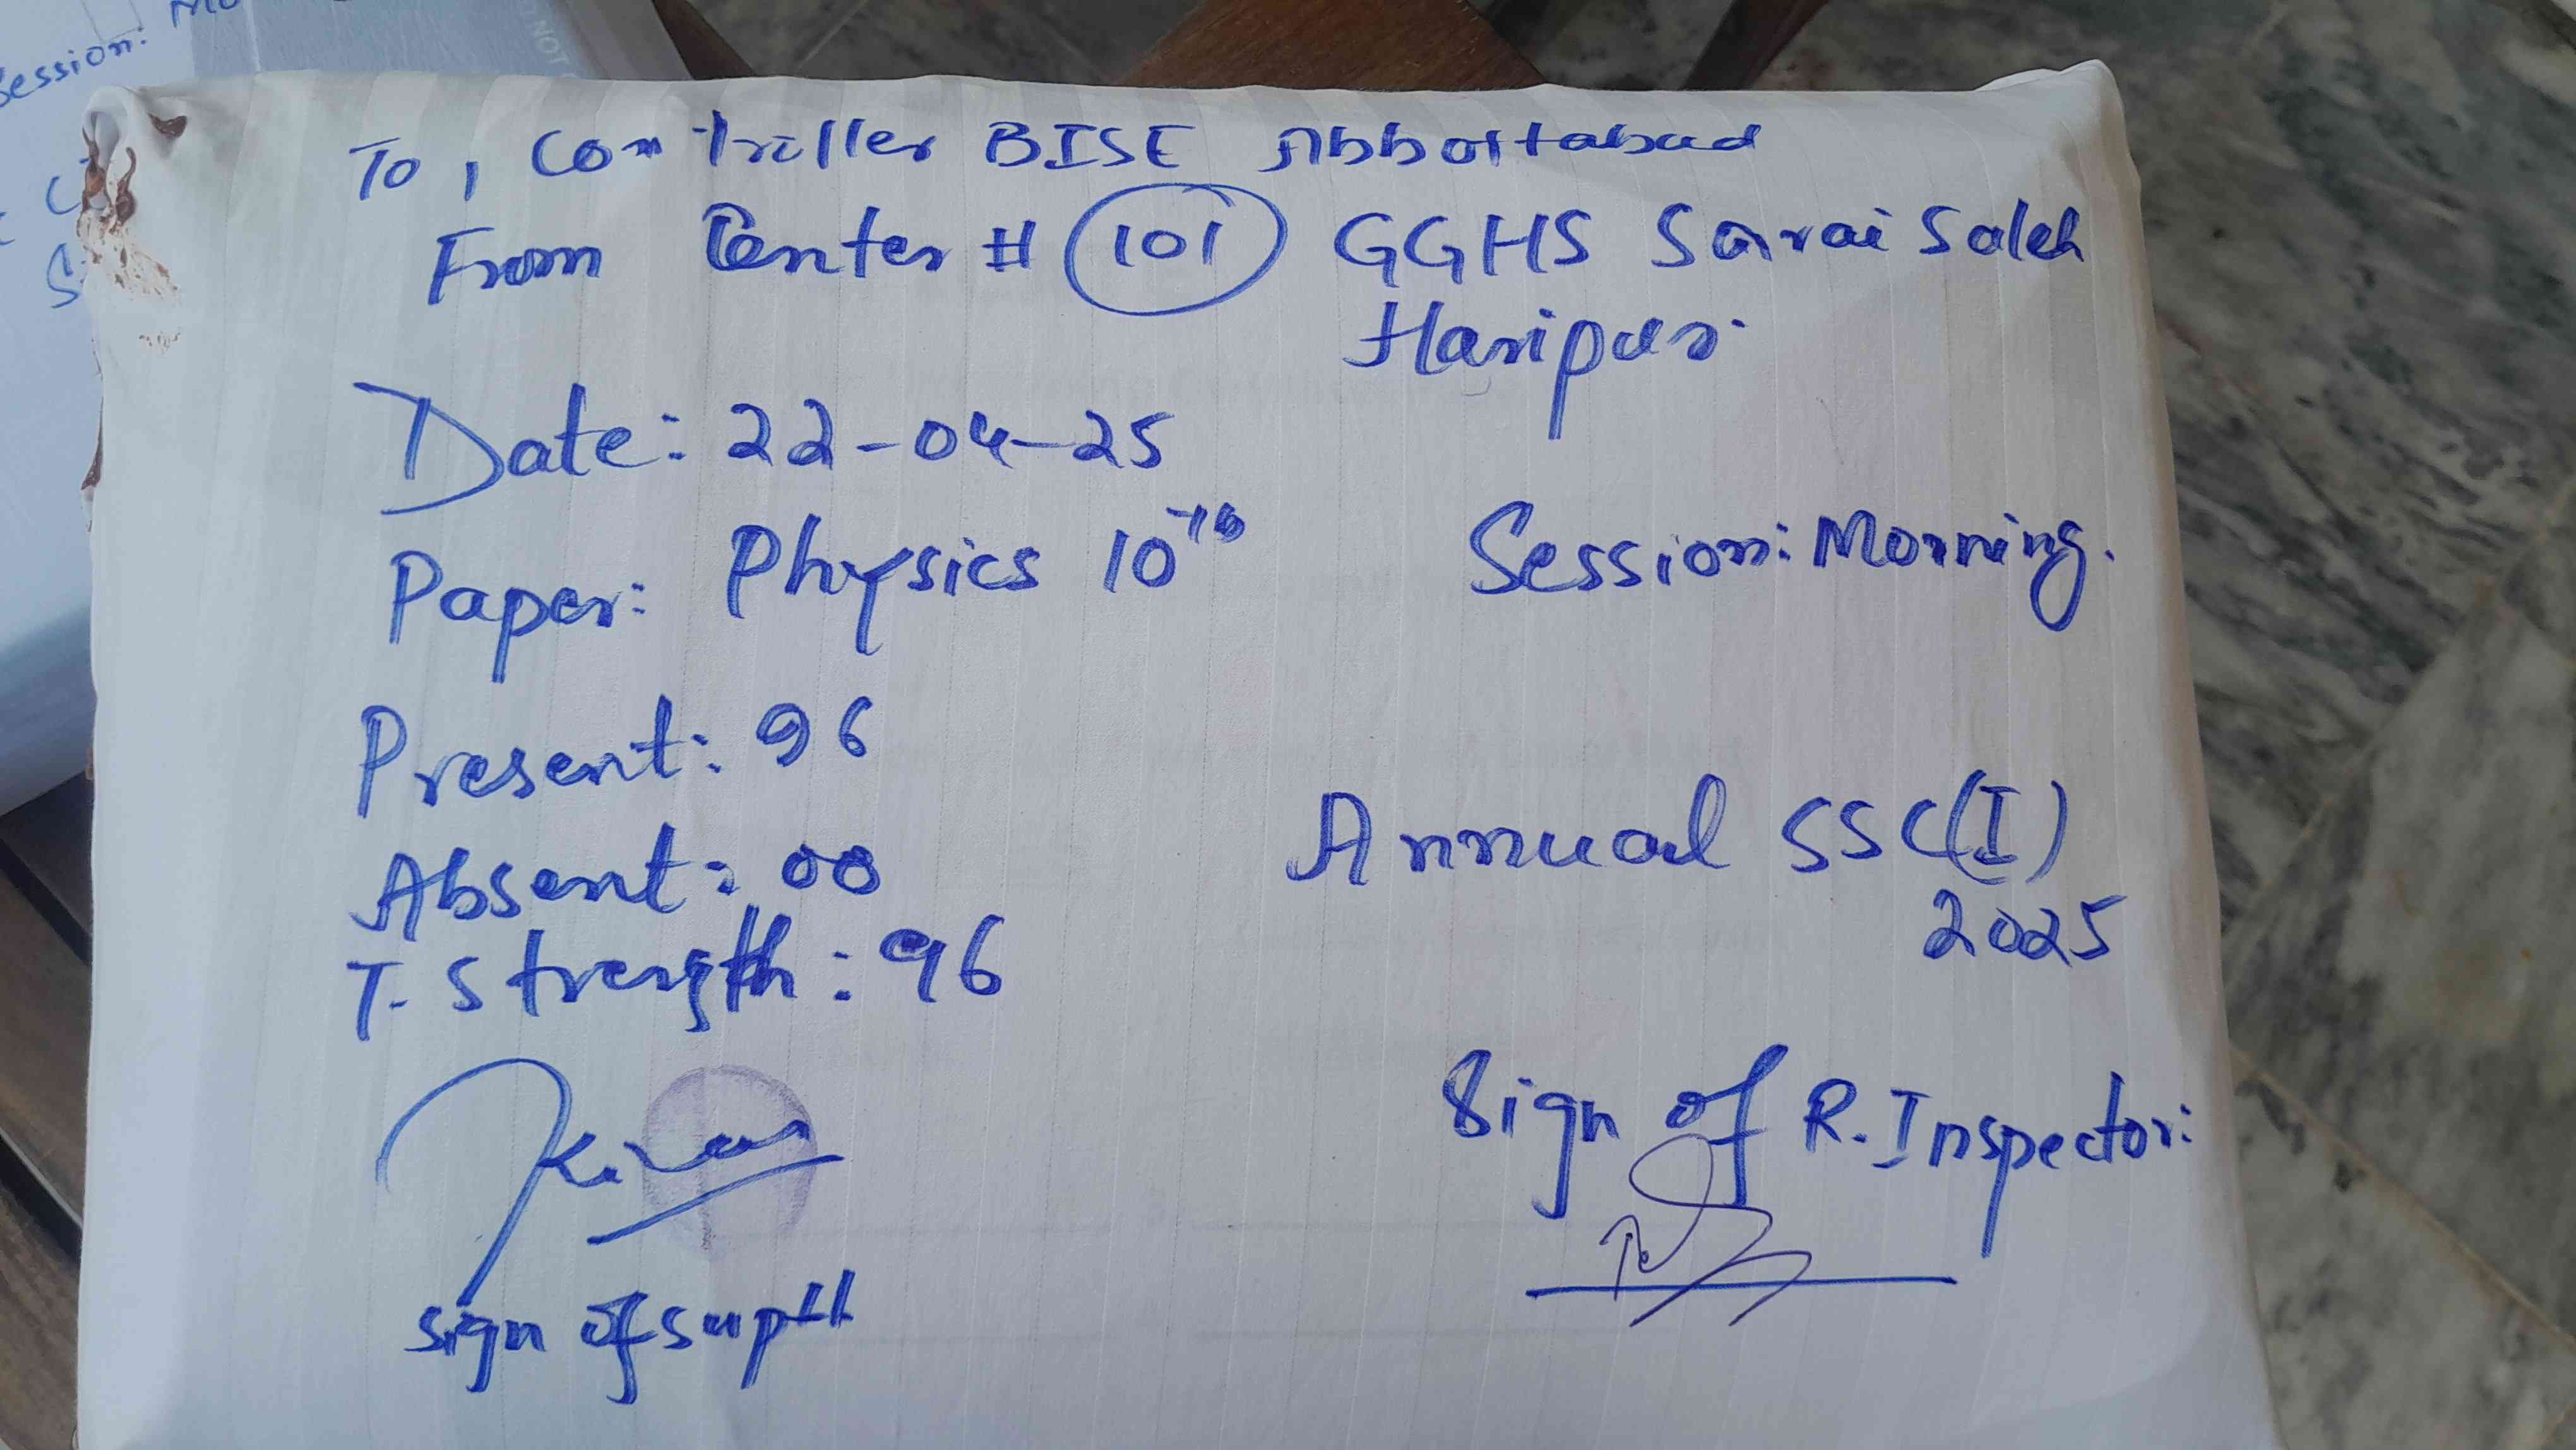 To, Controller BISE Abbottabad
From Center # 101 GGHS Sarai Saleh
Haripur.
Date: 22-04-25
Paper: Physics 10th
Session: Morning.
Present: 96
Absent: 00
Annual SSC(I)
2025
T. Strength: 96
Sign of R. Inspector:
Sign of Supdt
ession: Mo
NOT